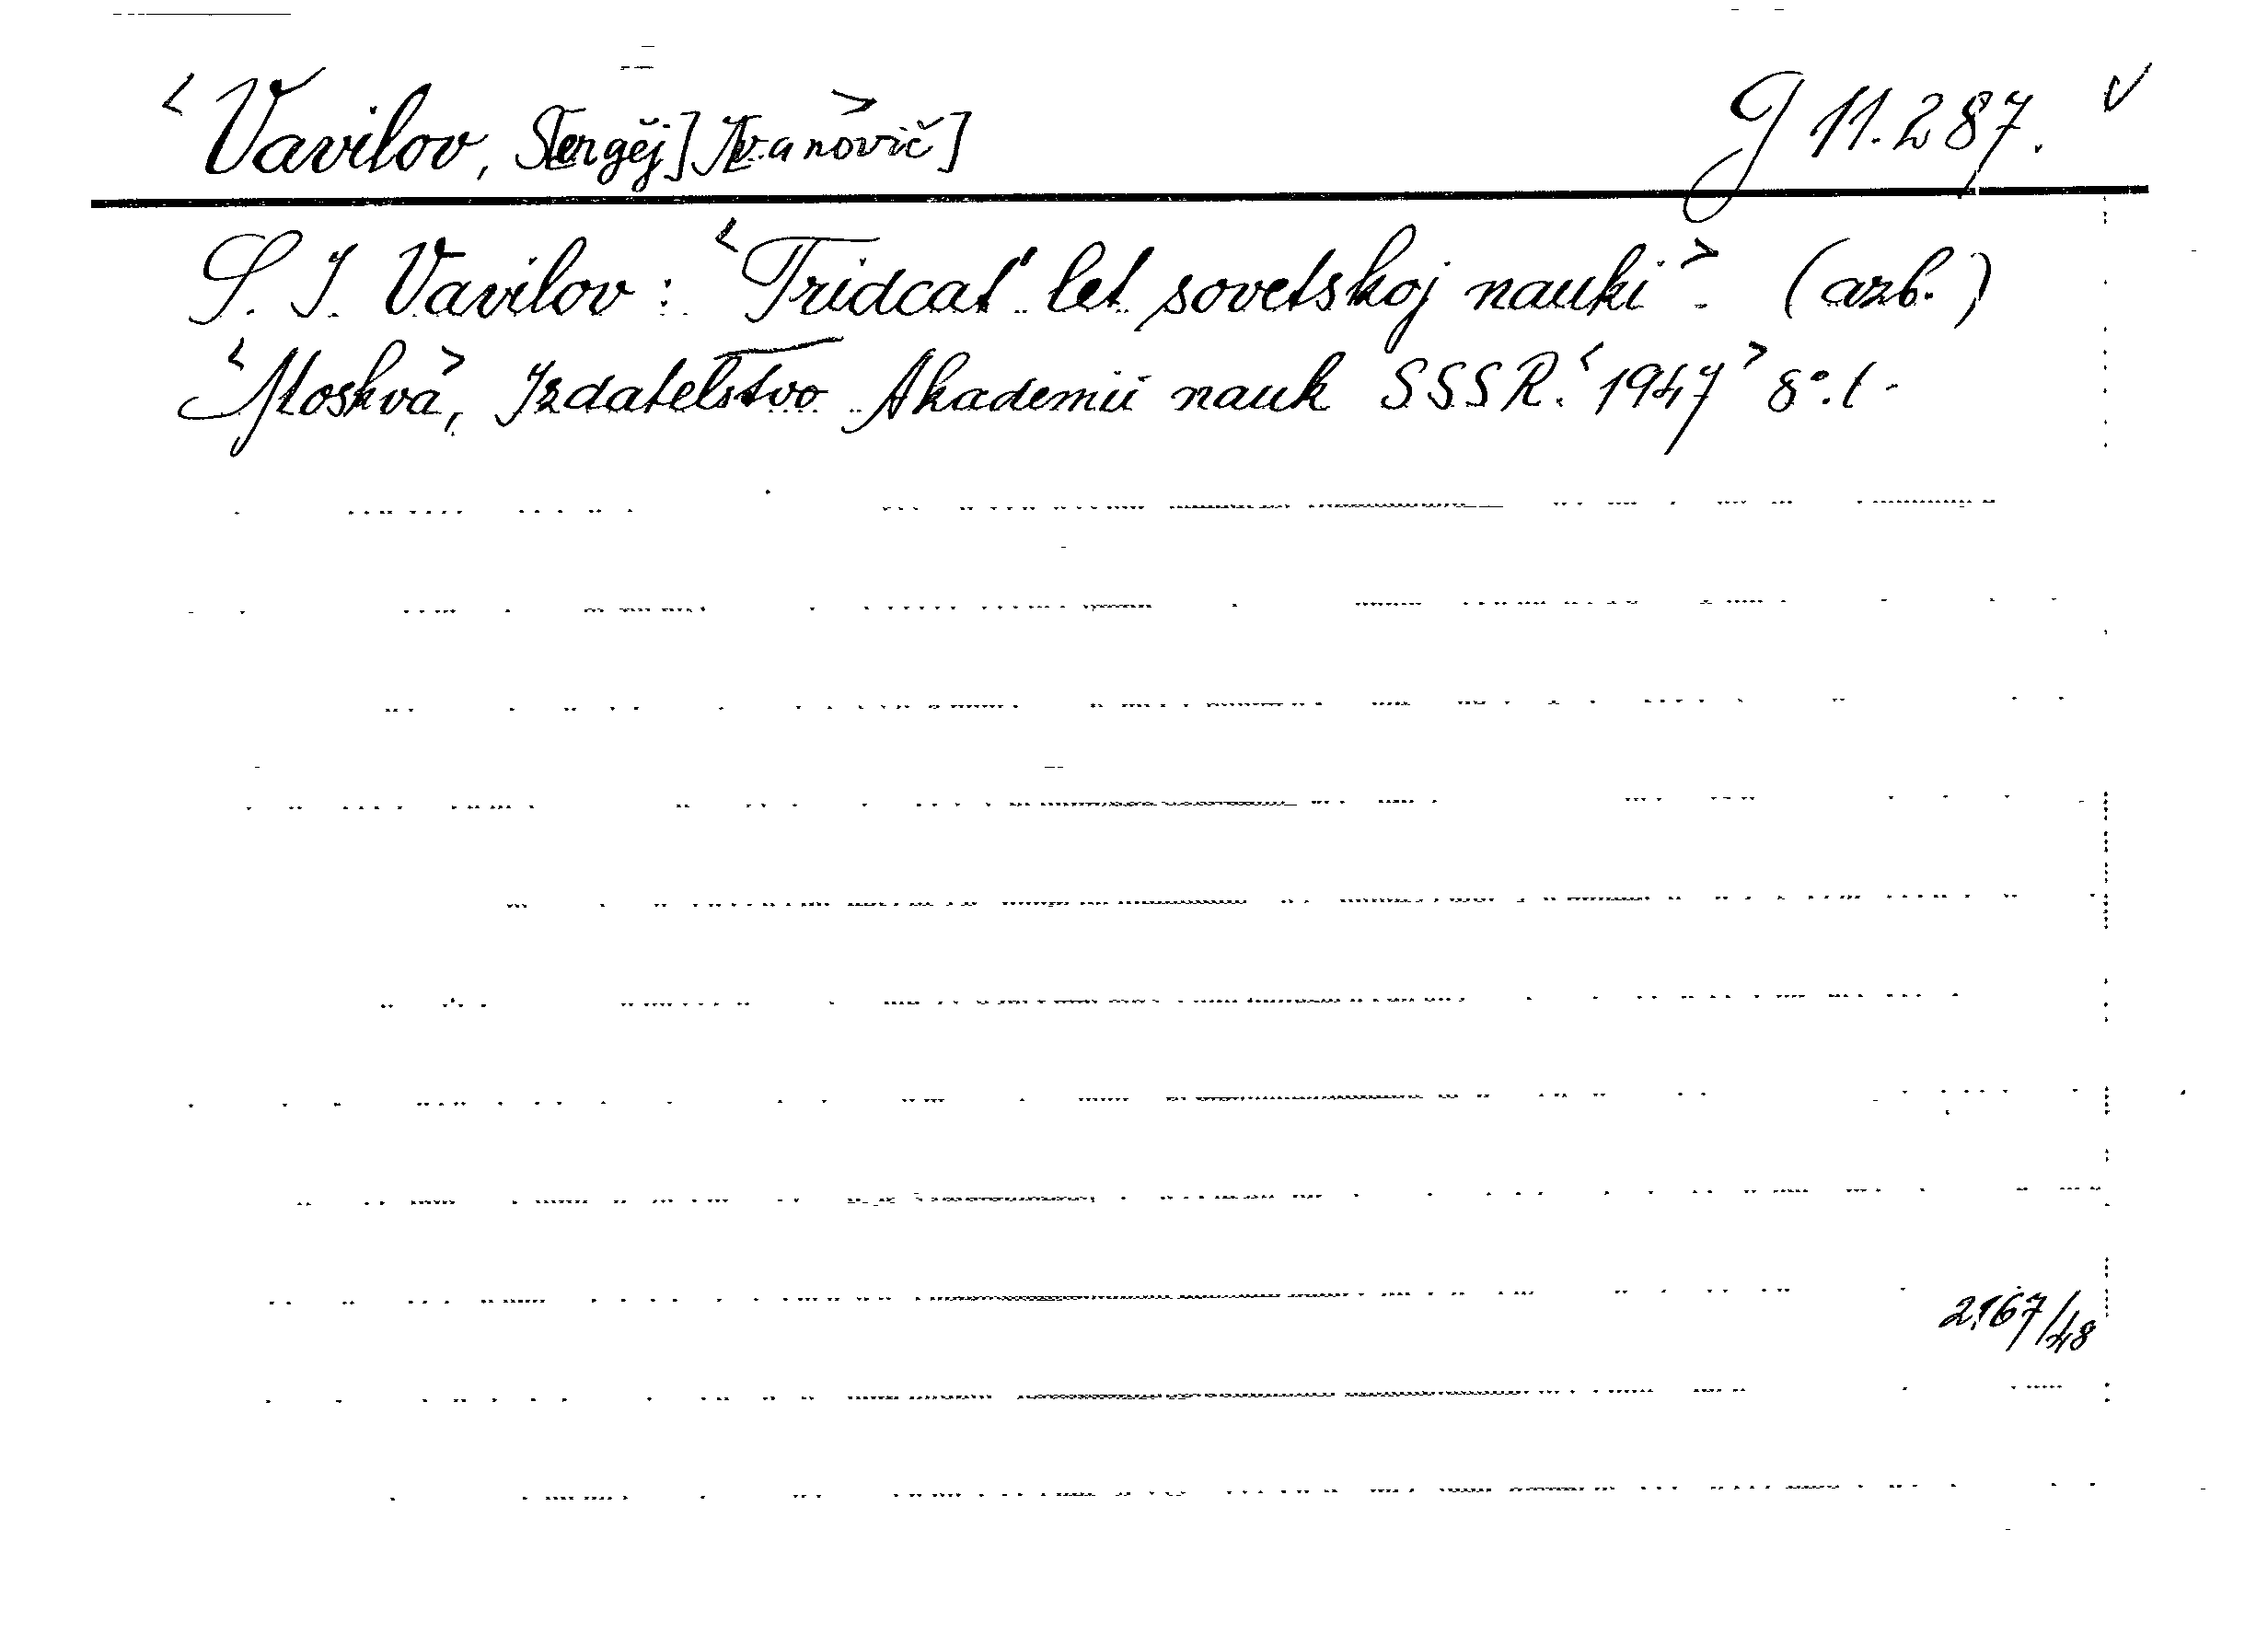 <Vavilov, S[ergěj] I[vanovič]> G 11.287.
S. I. Vavilov: <Tridcať let sovetskoj nauki>. (azb.)
<Moskva>, Izdatelstvo Akademii nauk SSSR. <1947> 8°. (-
2.167/48